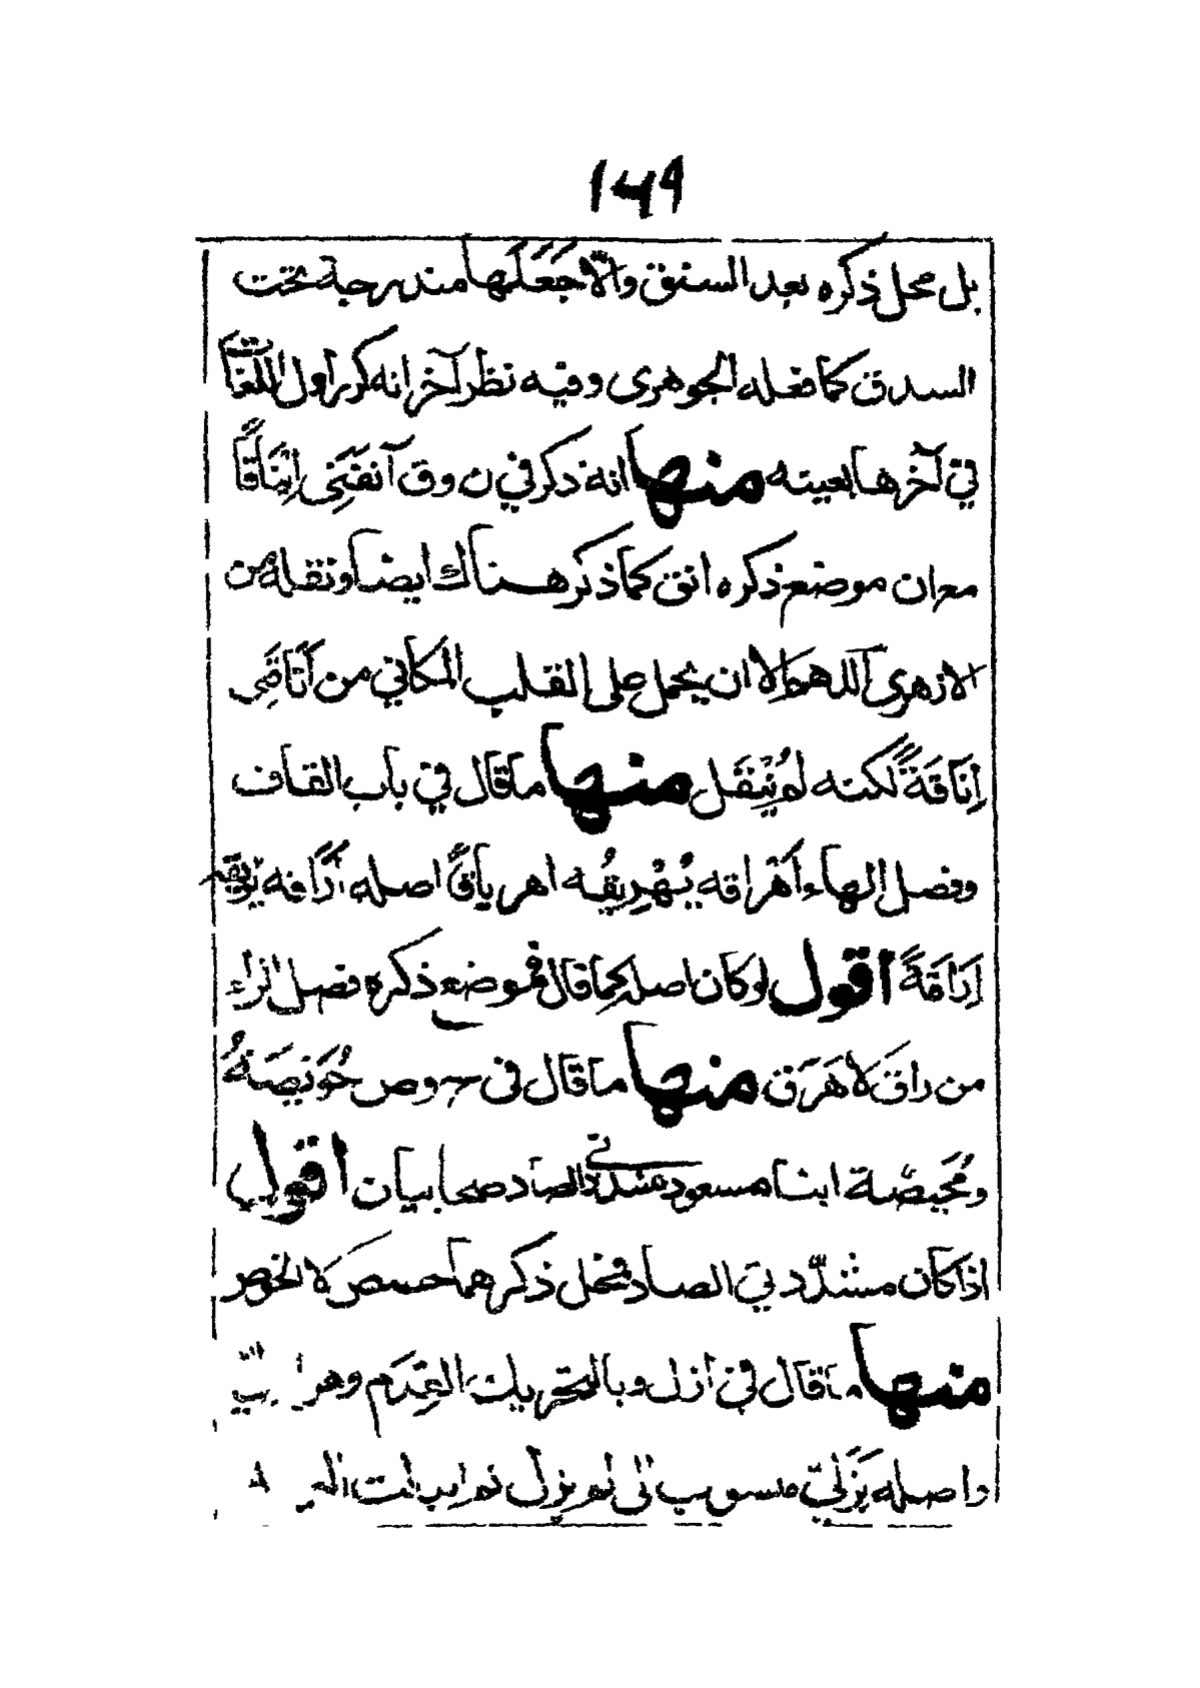 ١٦٩
بل محل ذكره بعد السنق والّا جَعَلَها مندرجة تحت
السدق كما فعله الجوهرى وفيه نظر آخر انه كرر اول اللغات
في آخرها بعينه منها انه ذكر في ن و ق آنقَنِى اِيْنَاقًا
مع ان موضع ذكره انق كما ذكر هناك ايضا ونقله من
الازهرى اللهم الا ان يحمل على القلب المكاني من أنَاقَنِى
اِنَاقَةً لكنه لم يُنْقَل منها ما قال في باب القاف
وفصل الهاء أهْرَاقه يُهْرِيقُه اهرياقًا اصله أرَاقه يُرِيقه
اِرَاقَةً اقول لو كان اصله كما قال فموضع ذكره فصل الراء
من راقَ لا هَرَقَ منها ما قال فى ح و ص حُوَيْصَةُ
ومُحَيصّة ابنا مسعود مشدّدتي الصاد صحابيان اقول
اذا كان مشدّدتي الصاد فمحل ذكرهما حصص لا الحوص
منها ما قال في ازل وبالتحريك القِدَم وهو
واصله يَزَلىّ منسوب الى لم يزل ثم ابدلت